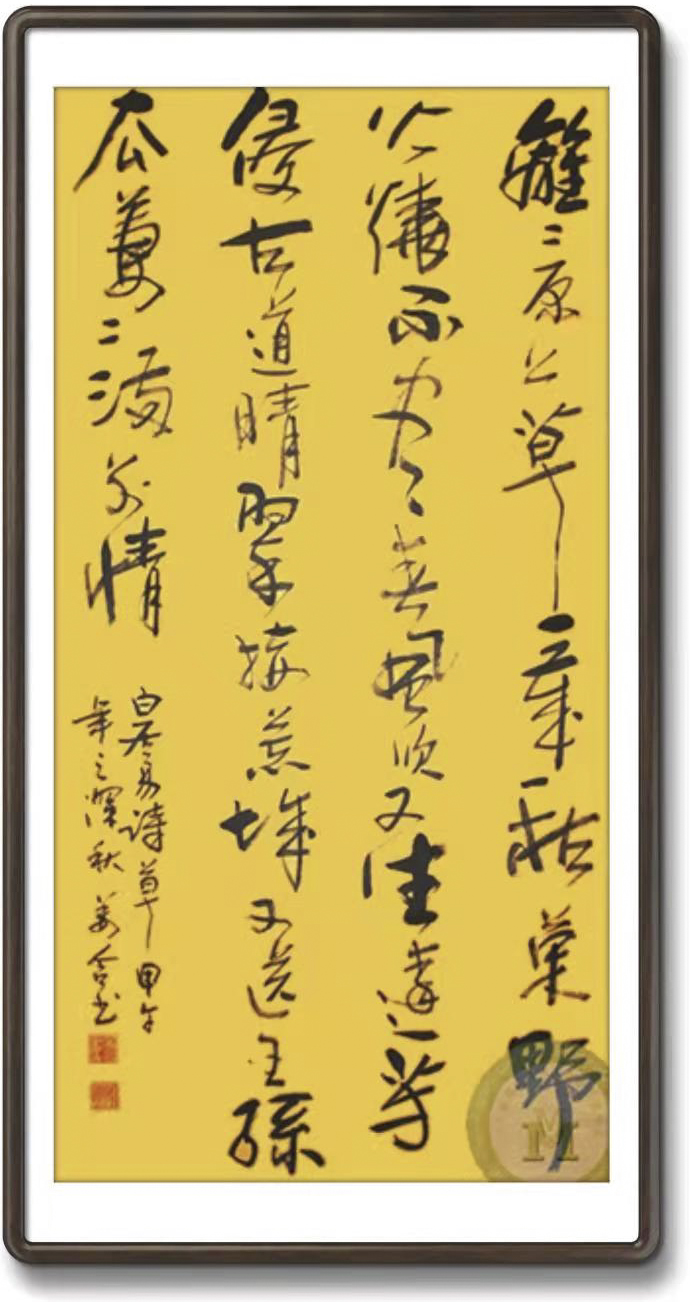 離〻原上草一歲一枯榮野
火燒不尽春風吹又生遠芳
侵古道晴翠接荒城又送王孫
去萋〻滿別情
白居易詩草甲午
年之深秋姜书
M